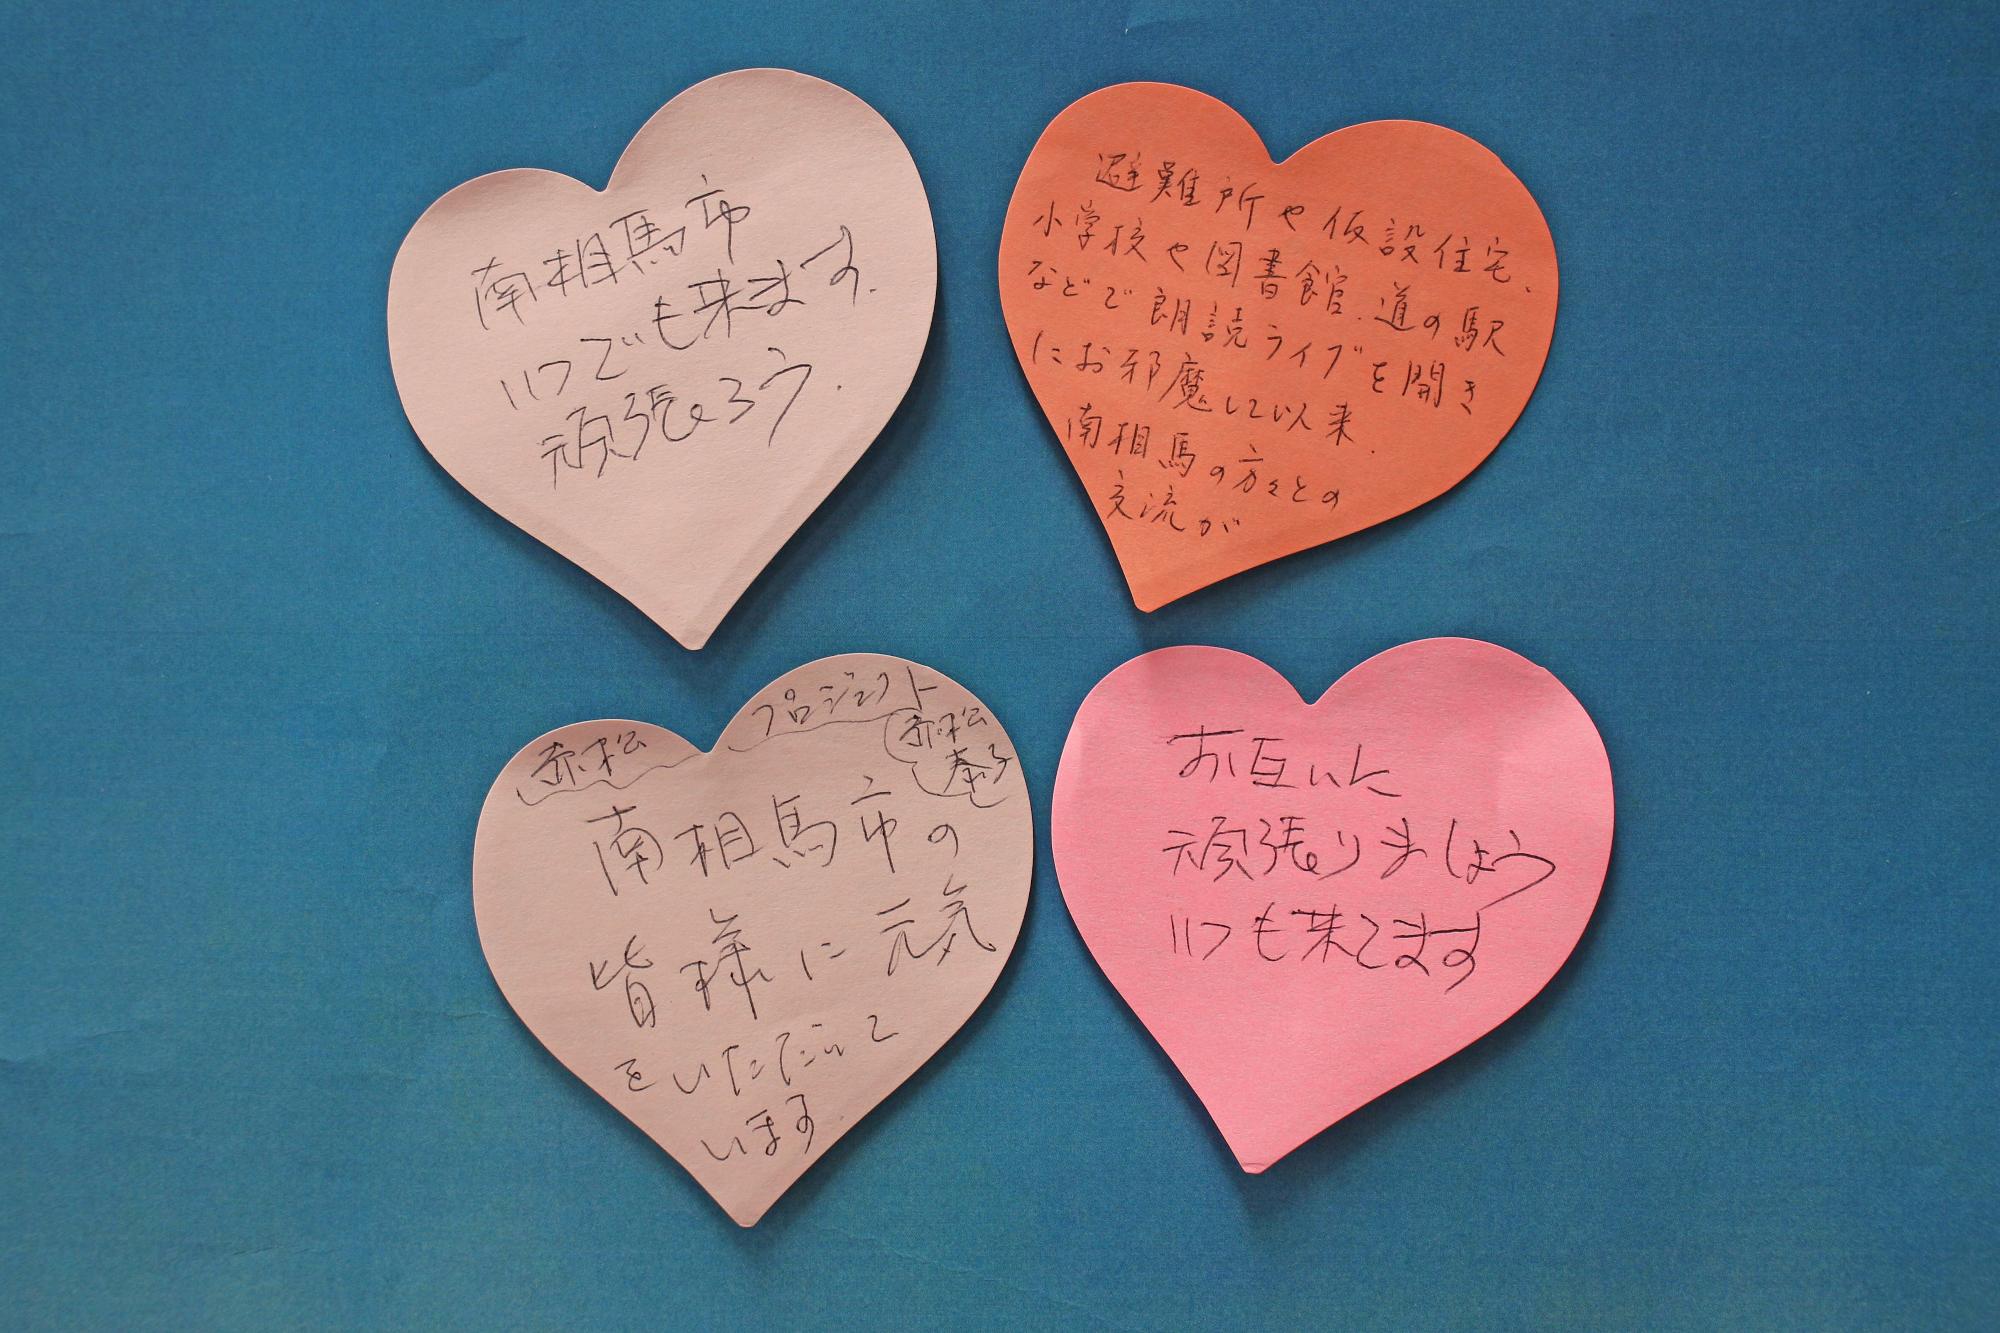 南相馬市
いつでも来ます.
頑張ろう.
避難所や仮設住宅、
小学校や図書館.道の駅
などで朗読ライブを開き
にお邪魔して以来.
南相馬の方々との
交流が
赤松
プロジェクト
赤松
南相馬市の
皆様に元気
をいただいて
います.
お互いに
頑張りましょう
いつも来てます